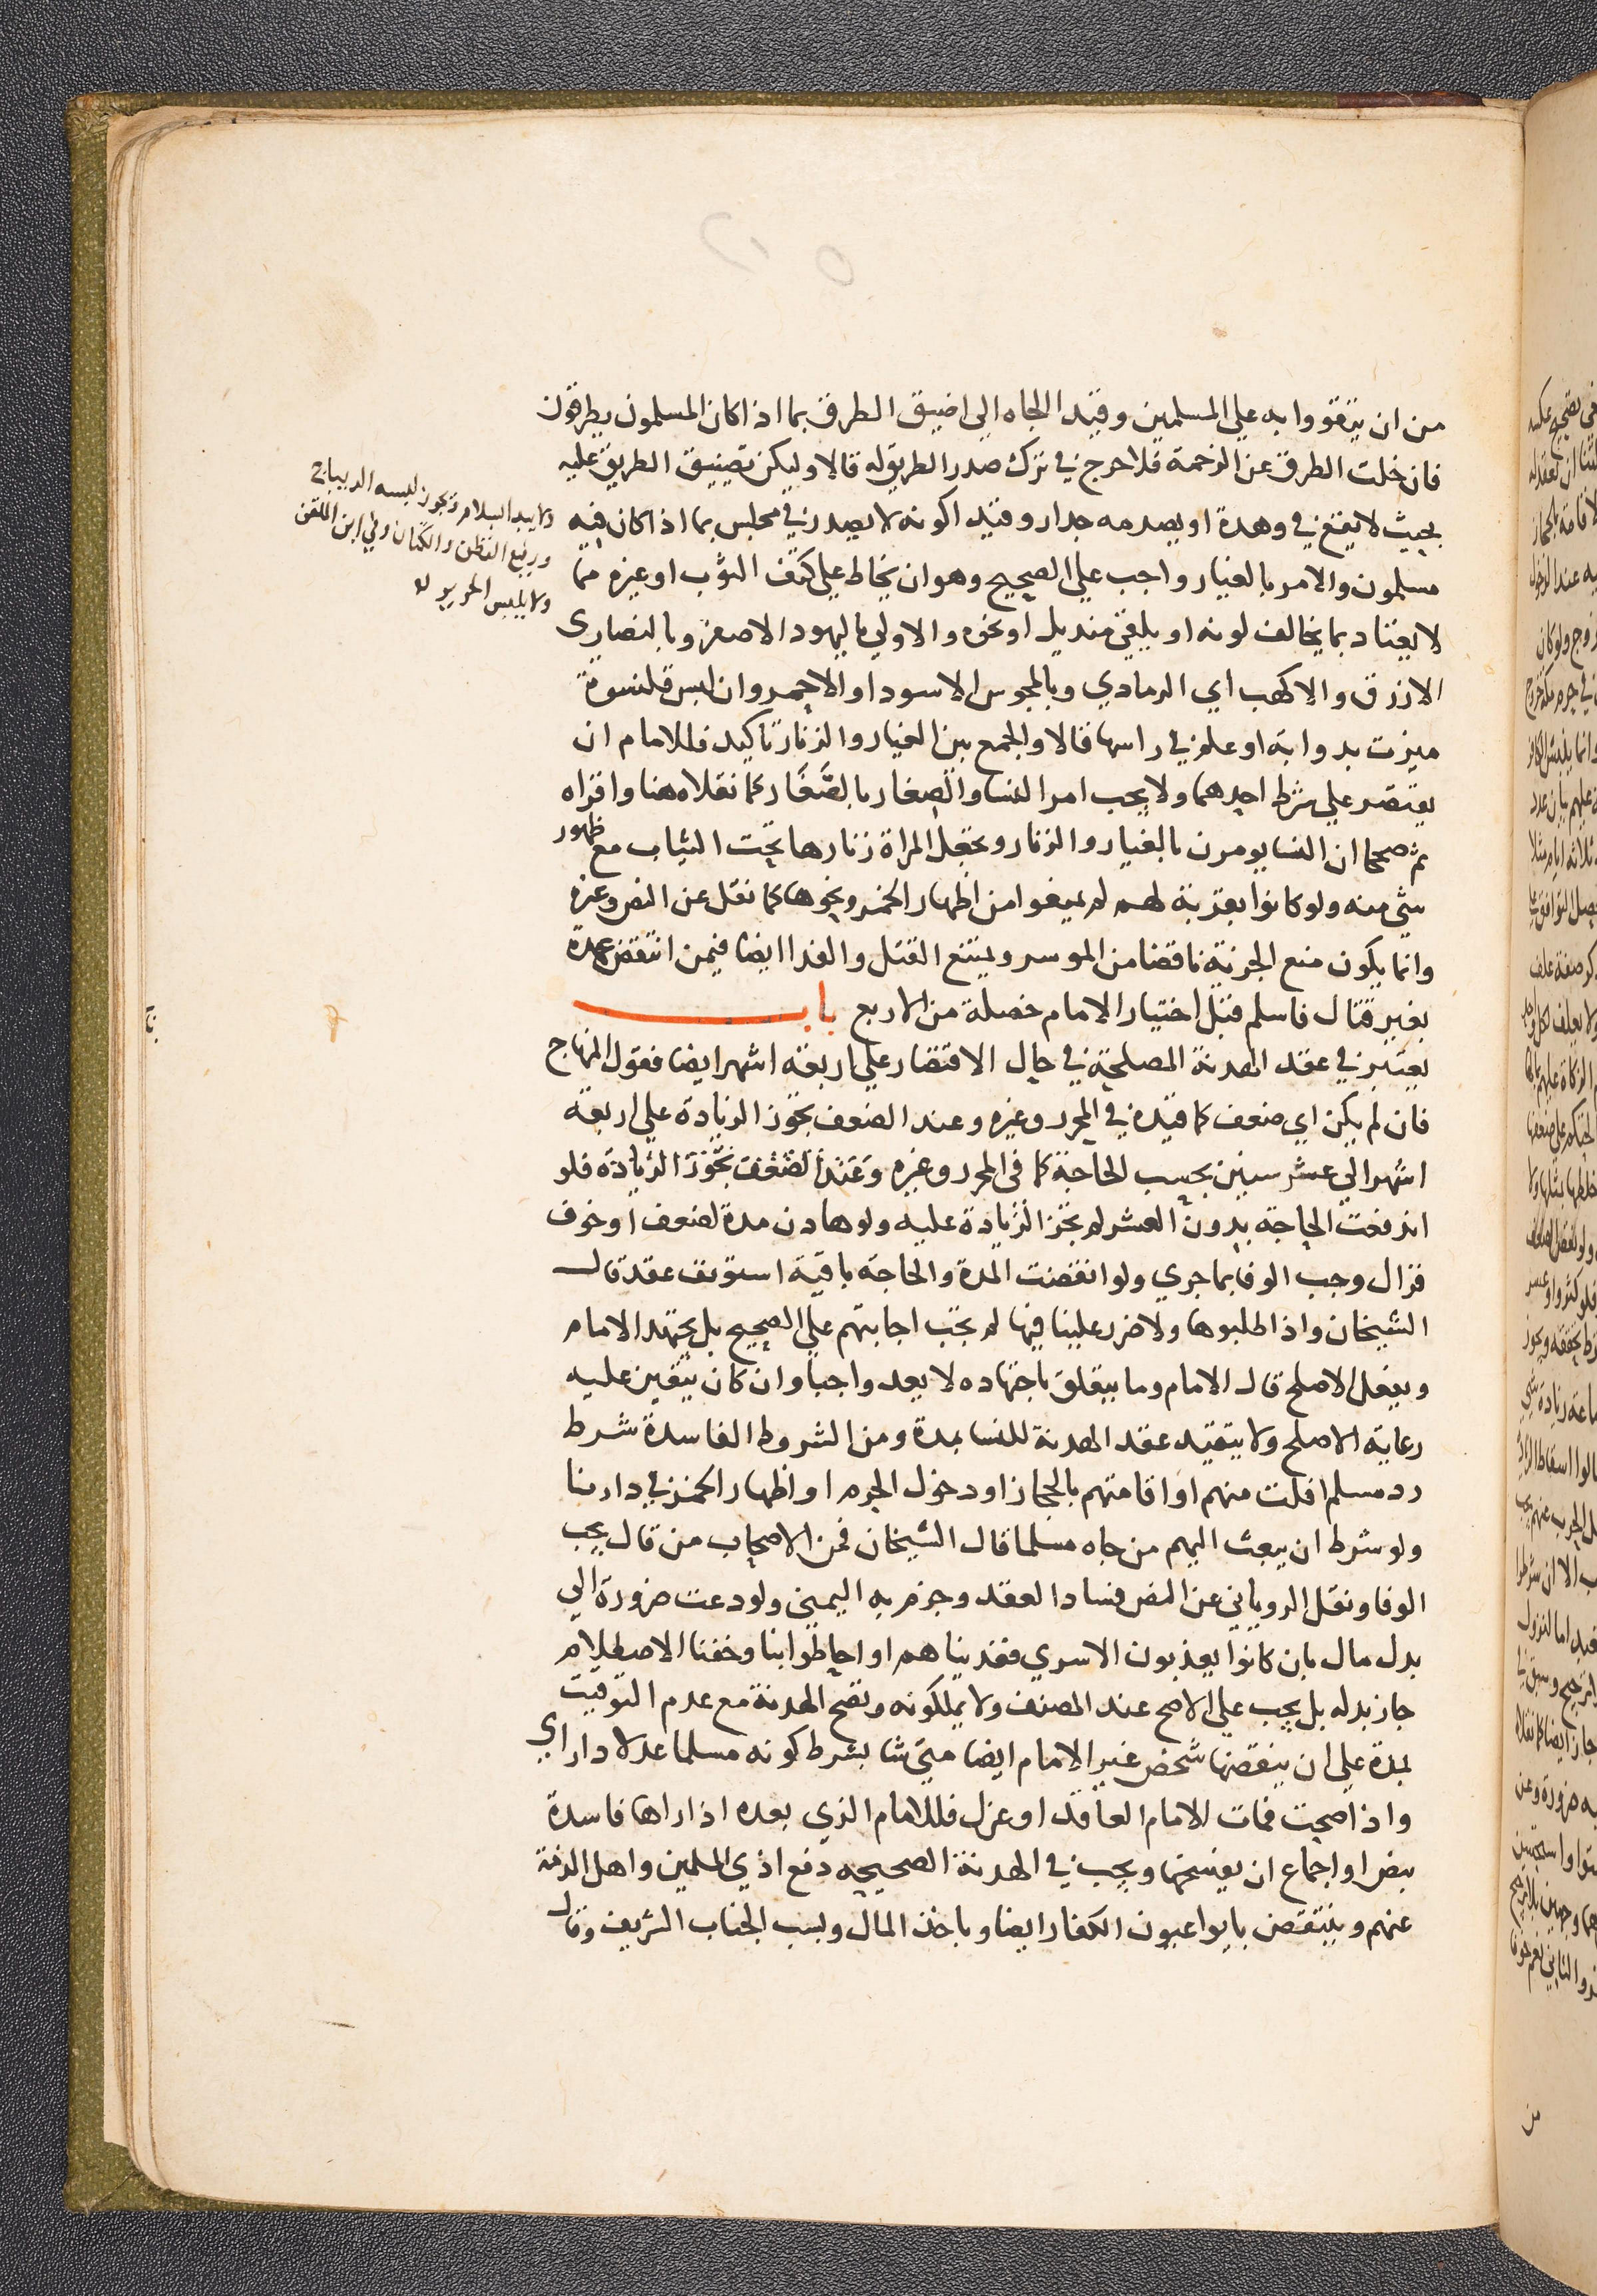 من ان يتقووا به علي المسلمين وقيد الجاه الي اضيق الطرق بما اذا كان المسلمون يطرقون
فان خلت الطرق عن الزحمة فلا حرج في ترك صدر الطريق له قالا وليكن تضييق الطريق عليه
بحيث لا يقع في وهدة او يصدمه جدار وقيد اكونه لا يصدر في مجلس بما اذا كان فيه
مسلمون والامر بالغيار واجب علي الصحيح وهو ان يخاط علي كتف الثوب او غيره مما
لا يعتاد بما يخالف لونه او يلقي منديل او نحوه والاولي باليهود الاصفر وبالنصاري
الازرق والاكهب اي الرمادي وبالمجوس الاسود او الاحمر وان لبس قلنسوة
ميزت بدوابة او علم في راسها قالا والجمع بين الغيار والزنار تاكيد فللامام ان
يقتصر علي شرط احدهما ولا يجب امر النسا والصغار بالصغار كما نقلاه هنا واقراه
ثم صححا ان النسا يومرن بالغيار والزنار وتجعل المراة زنارها تحت الثياب مع ظهور
شي منه ولو كانوا بقرية لهم لم يمنعوا من اظهار الخمر ونحوها كما نقل عن النص وغيره
وانما يكون منع الجزية ناقضا من الموسر ويمتنع القتل والفدا ايضا فيمن انتقض عهده
بغير قتال فاسلم قبل اختيار الامام خصلة من الاربع باب
يعتبر في عقد الهدنة المصلحة في حال الاقتصار علي اربعة اشهر ايضا فقول المنهاج
فان لم يكن اي ضعف كما قيده في المحرر وغيره وعند الضعف تجوز الزيادة علي اربعة
اشهر الي عشر سنين بحسب الحاجة كما في المحرر وغيره وعند الضعف تجوز الزيادة فلو
اندفعت الحاجة بدون العشر لم تجز الزيادة عليه ولو هادن مدة لضعف او خوف
فزال وجب الوفا بما جري ولو انقضت المدة والحاجة باقية استونف عقد قال
الشيخان واذا طلبوها ولا ضرر علينا فيها لم تجب اجابتهم علي الصحيح بل يجتهد الامام
ويفعل الاصلح قال الامام وما يتعلق باجتهاده لا يعد واجبا وان كان يتعين عليه
رعاية الاصلح ولا يتقيد عقد الهدنة للنسا بمدة ومن الشروط الفاسدة شرط
رد مسلم افلت منهم او اقامتهم بالحجاز او دخول الحرم او اظهار الخمر في دارنا
ولو شرط ان يبعث اليهم من جاه مسلما قال الشيخان فمن الاصحاب من قال يجب
الوفا ونقل الروياني عن النص فساد العقد وجزم به اليمني ولو دعت ضرورة الي
بدل مال بان كانوا يعذبون الاسري ففديناهم او احاطوا بنا وخفنا الاصطلام
جاز بدله بل يجب علي الاصح عند المصنف ولا يملكونه وتصح الهدنة مع عدم التوقيت
بمدة علي ان ينقضها شخص غير الامام ايضا متي شا بشرط كونه مسلما عدلا دا راي
واذا صحت فمات الامام العاقد او عزل فللامام الذي بعده اذا راها فاسدة
بنص او اجماع ان يفسخها ويجب في الهدنة الصحيحه دفع اذي المسلمين واهل الذمة
عنهم وينتقض بايوا عيون الكفار ايضا وباخذ المال وبسب الجناب الشريف وقال
ولا يبدا السلام وتجوز لبسه الديباج
ورفيع القطن والكتان وفي ابن الملقن
ولا يلبس الحرير